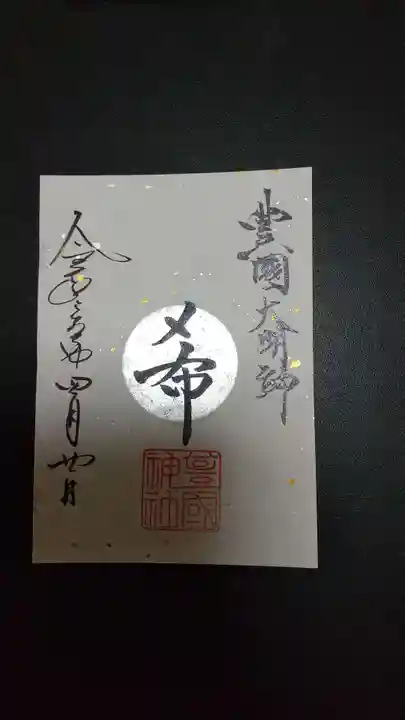 豊國大明神
希
豊國神社
令和三年四月廿日